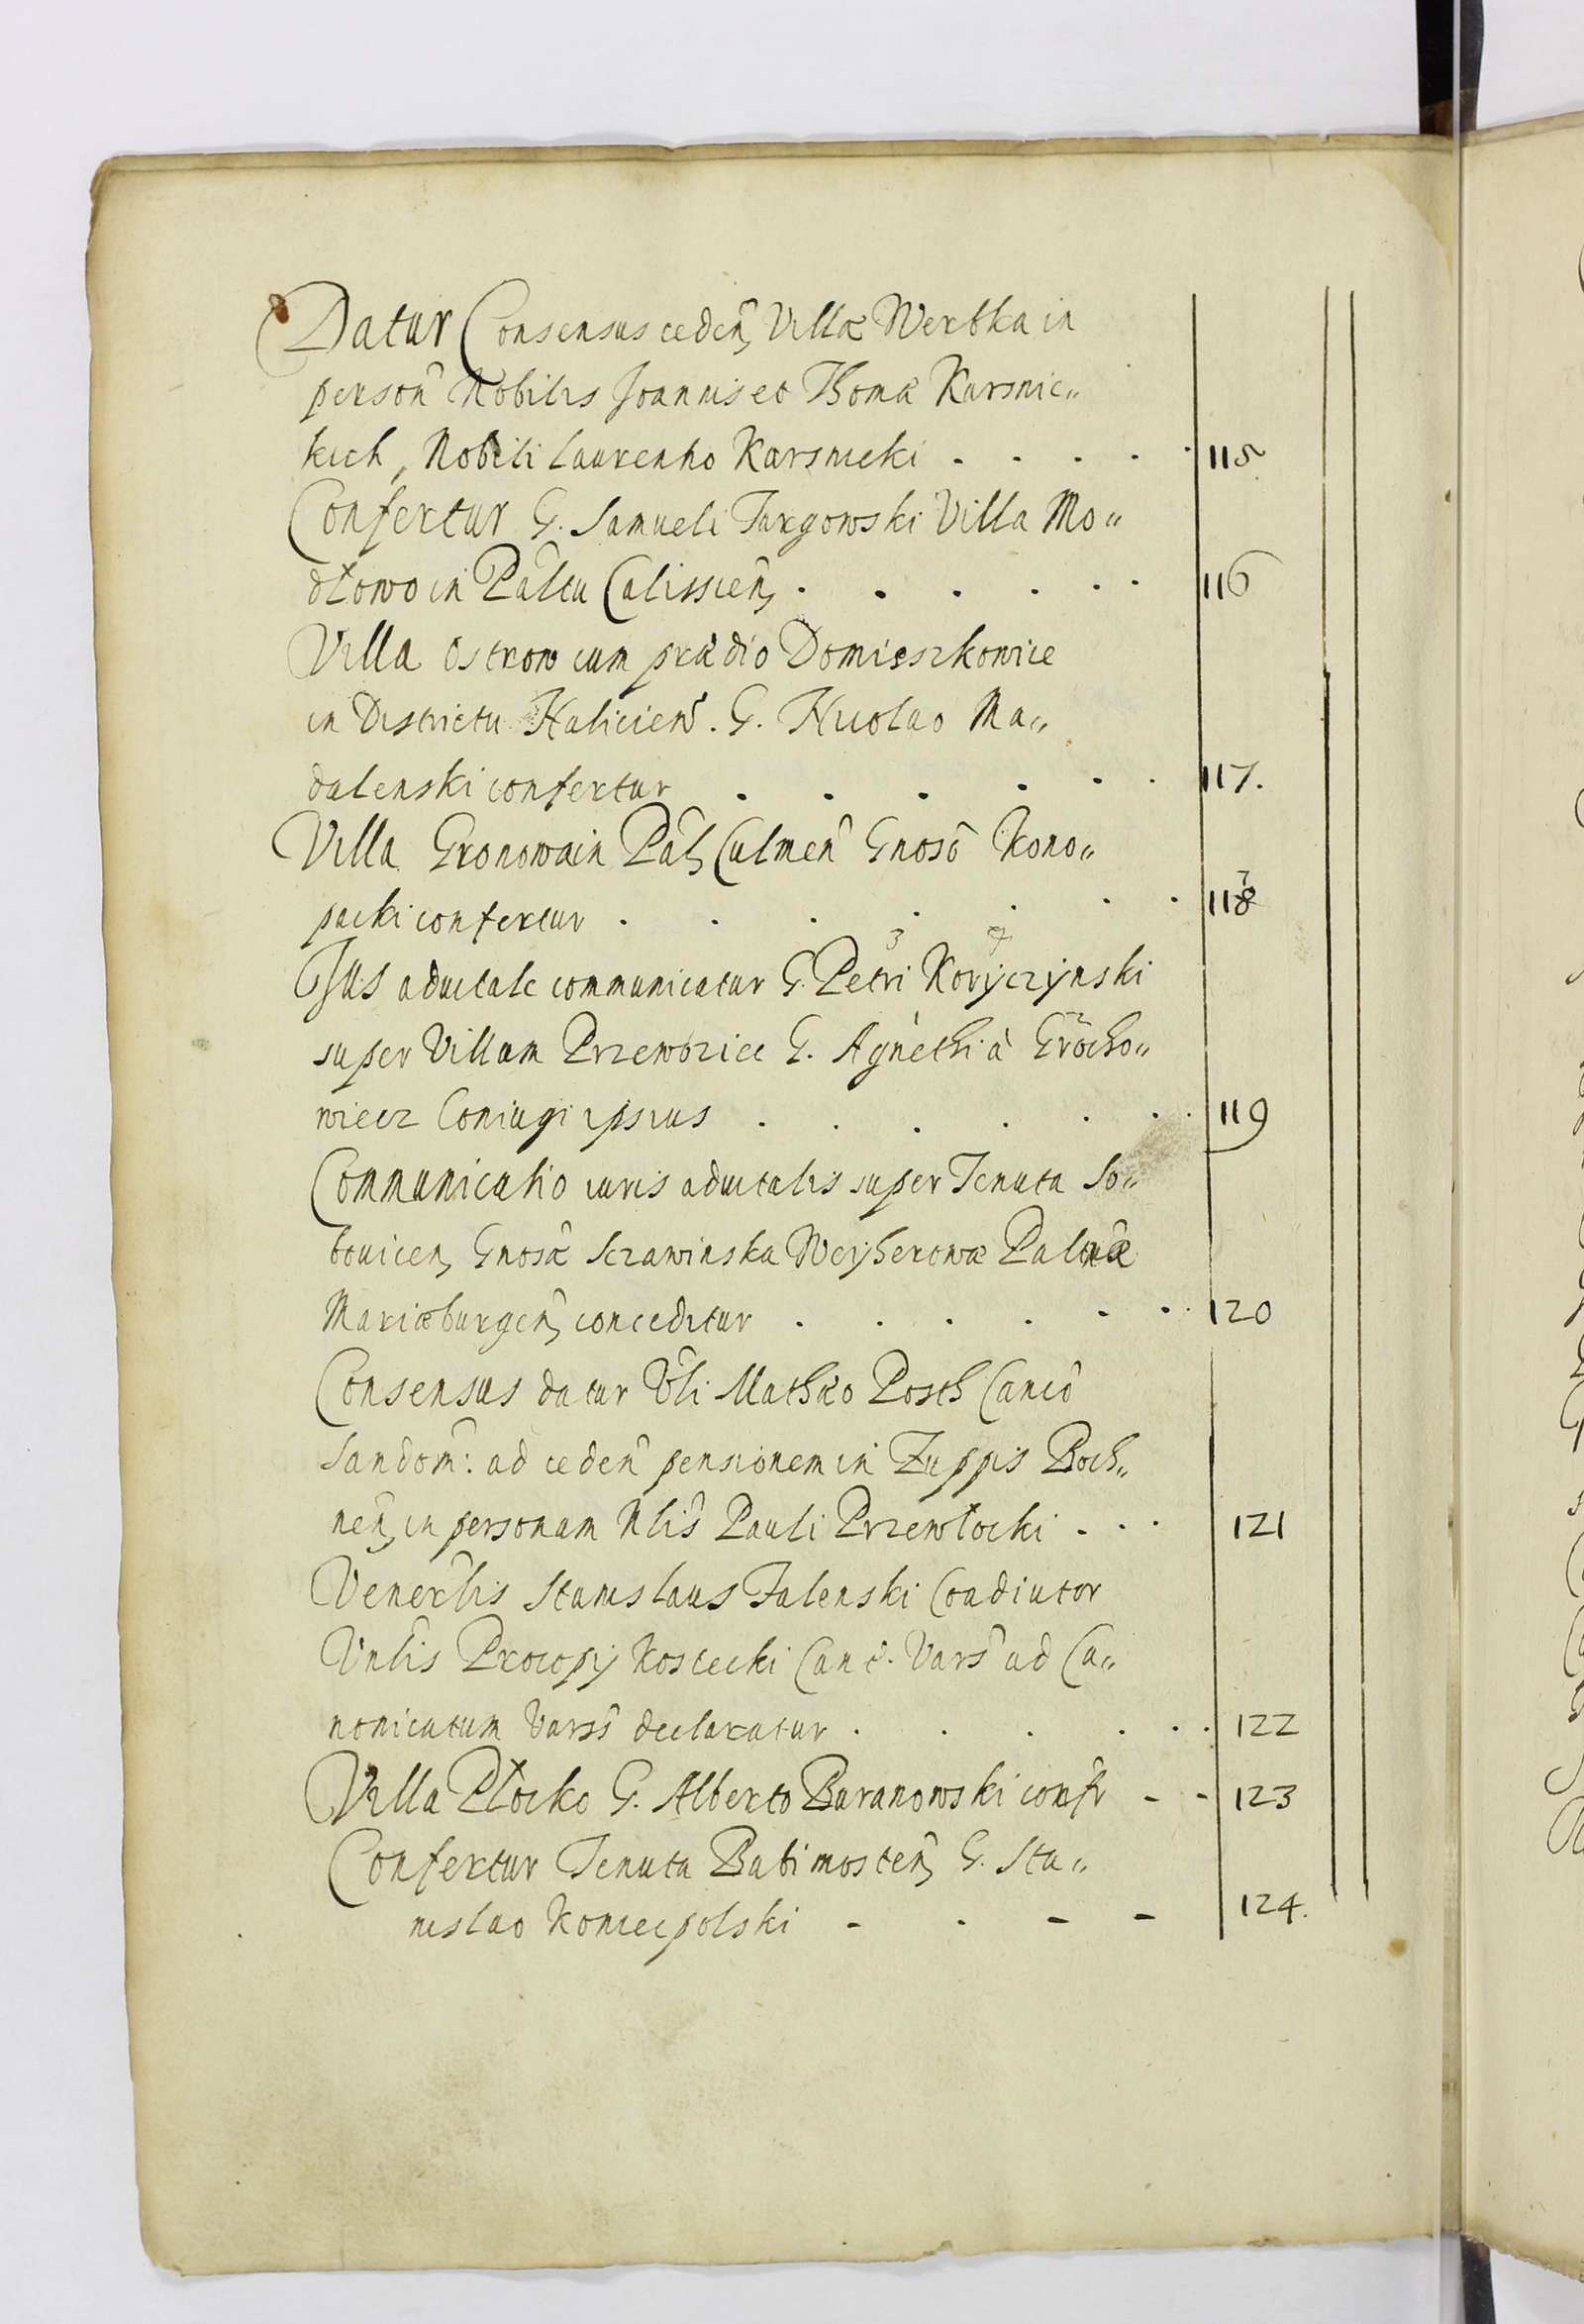 Datur Consensus ceden, Villæ Wertka in
person Nobilis Joannis et Thomæ Karsnic„
kich, Nobili Laurentio Karsnicki . . . . . 115
Confertur G. Samueli Targowski Villa Mo„
dłowo in Pałtu Calissien, . . . . . . 116
Villa Ostrow cum prædio Domieszkowice
in Districtu Halicien. G. Nicolao Ma„
dalenski confertur . . . . . . 117.
Villa Gronowa in Pal, Culmen Gnoso Kono„
packi confertur . . . . . . . 118 7
Jus aduitale communicatur G. Petri Koryczynski
super Villam Przewozice G. Agnethi à Grocho„
wiecz Coniugi ipsius . . . . . . 119
Communicatio iuris aduitalis super Tenuta So„
bouicen, Gnosæ Sczawinska Weyherowæ Palnæ
Mariæburgen, conceditur . . . . . . 120
Consensus datur Vli Mathæo Posth Canco
Sandom: ad ceden pensionem in Zuppis Boch„
nen, in personam Nlis Pauli Przewłocki . . . 121
Venerlis Stanislaus Zalenski Coadiutor
Vnlis Procopij Koscecki Canc. Vars ad Ca„
nonicatum Varss declaratur . . . . . . 122
Villa Płocko G. Alberto Baranowski confr - - 123
Confertur Tenuta Babimosten, G. Sta„
nislao Koniecpolski - . - - 124.